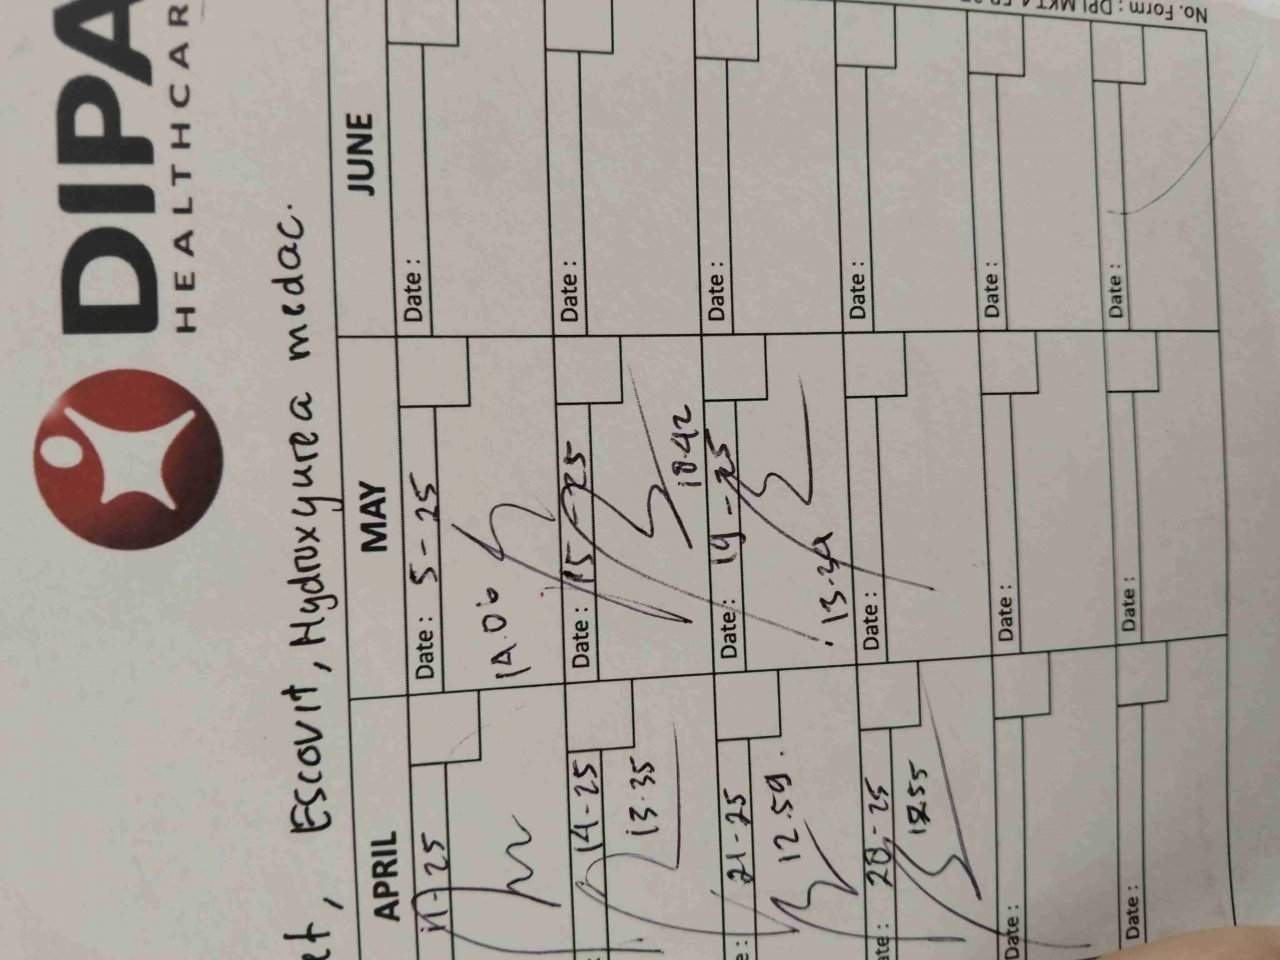 DIPA
HEALTHCAR
No. Form : DPI MKT
et, Escovit, Hydroxyurea medac.
APRIL MAY JUNE
11-25 Date : 5-25 Date :
14.06
14-25 Date : 15-25 Date :
13.35 18.42
21-25 Date : 19-25 Date :
12.59. 13.34
ate : 28-25 Date : Date :
Date : Date : Date :
Date : Date : Date :